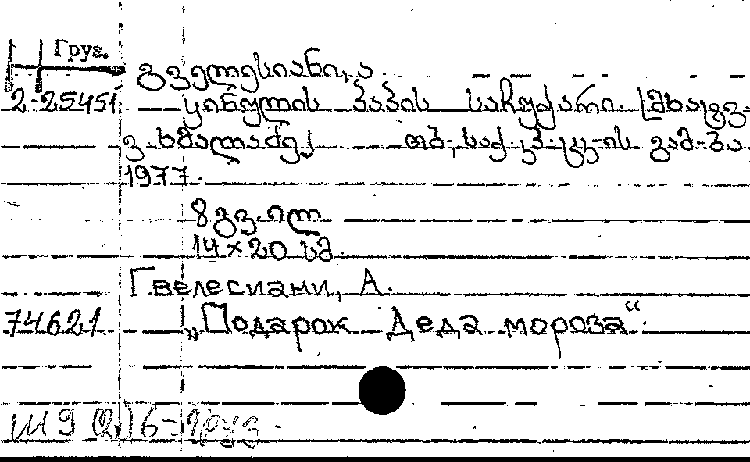 Груз.
გველესიანი, ა.
2-25451 ყინულის პაპის საჩუქარი. [მხატვ.
ვ. ხმალაძე] თბ., საქ. კპ ცკ-ის გამ-ბა
1977.
8 გვ. ილ
14×20 სმ.
Гвелесиани, А.
74621 „Подарок Деда мороза“.
Ш9(2)6-Груз